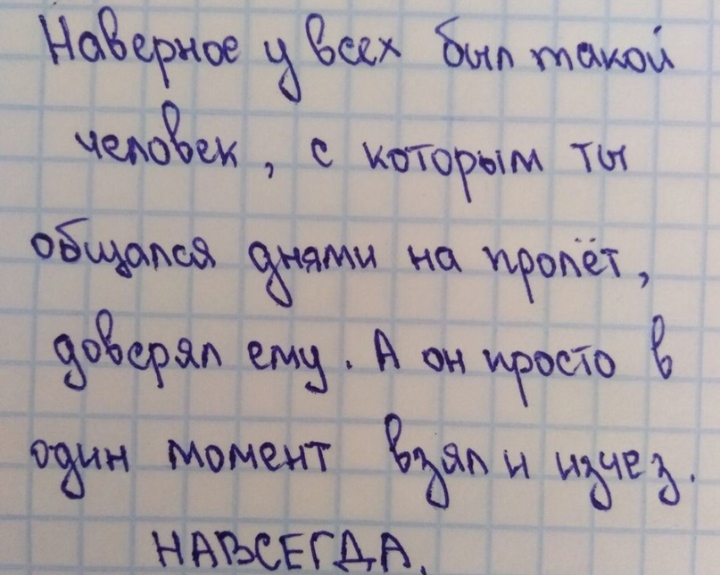 Наверное у всех был такой
человек, с которым ты
общался днями на пролёт,
доверял ему. А он просто в
один момент взял и изчез.
НАВСЕГДА.